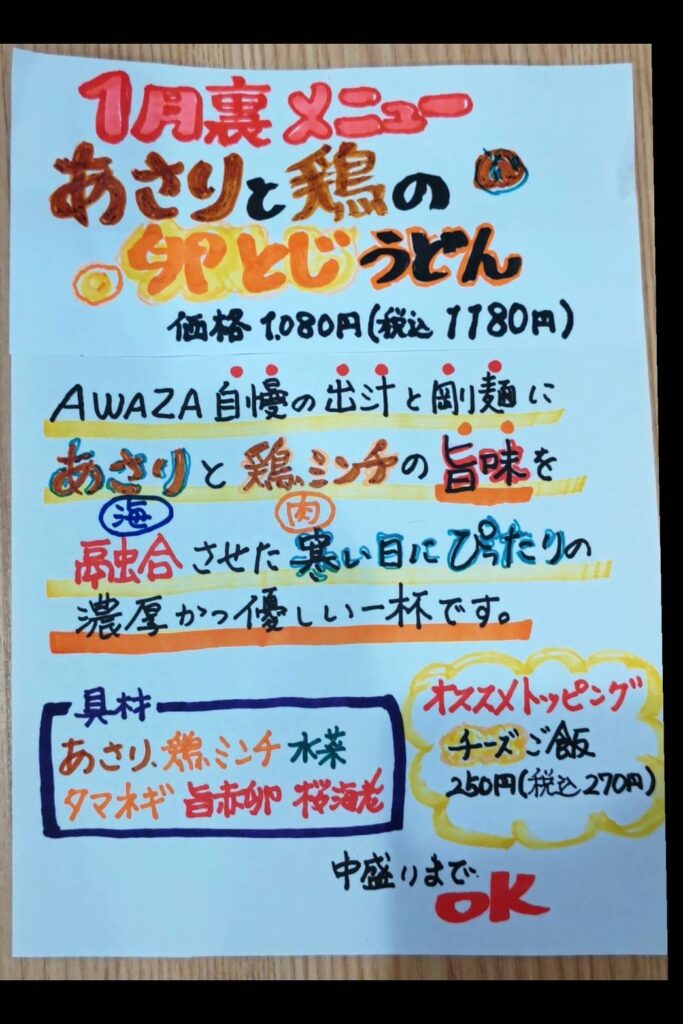 1月裏メニュー
あさりと鶏の
卵とじうどん
価格1.080円(税込1180円)
AWAZA自慢の出汁と剛麺に
あさりと鶏ミンチの旨味を
海 肉
融合させた寒い日にぴったりの
濃厚かつ優しい一杯です。
具材
あさり、鶏ミンチ 水菜
タマネギ 旨赤卵 桜海老
オススメトッピング
チーズご飯
250円(税込270円)
中盛りまで
OK